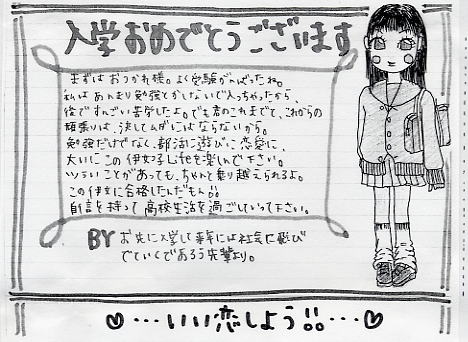 入学おめでとうございます
まずはおつかれ様。よく受験がんばったね。
私はあんまり勉強とかしないで入っちゃったから、
後ですんごい苦労したよ。でも君のこれまでと、これからの
頑張りは、決してムダにはならないから。
勉強だけでなく、部活に遊びに恋愛に、
大いにこの伊女子Lifeを楽しんで下さい。
ツライことがあっても、ちゃんと乗り越えられるよ。
この伊女に合格したんだもん!!
自信を持って高校生活を過ごしていって下さい。
BY お先に入学して来年には社会に飛び
でていくであろう先輩より。
♡・・・いい恋しよう!!・・・♡